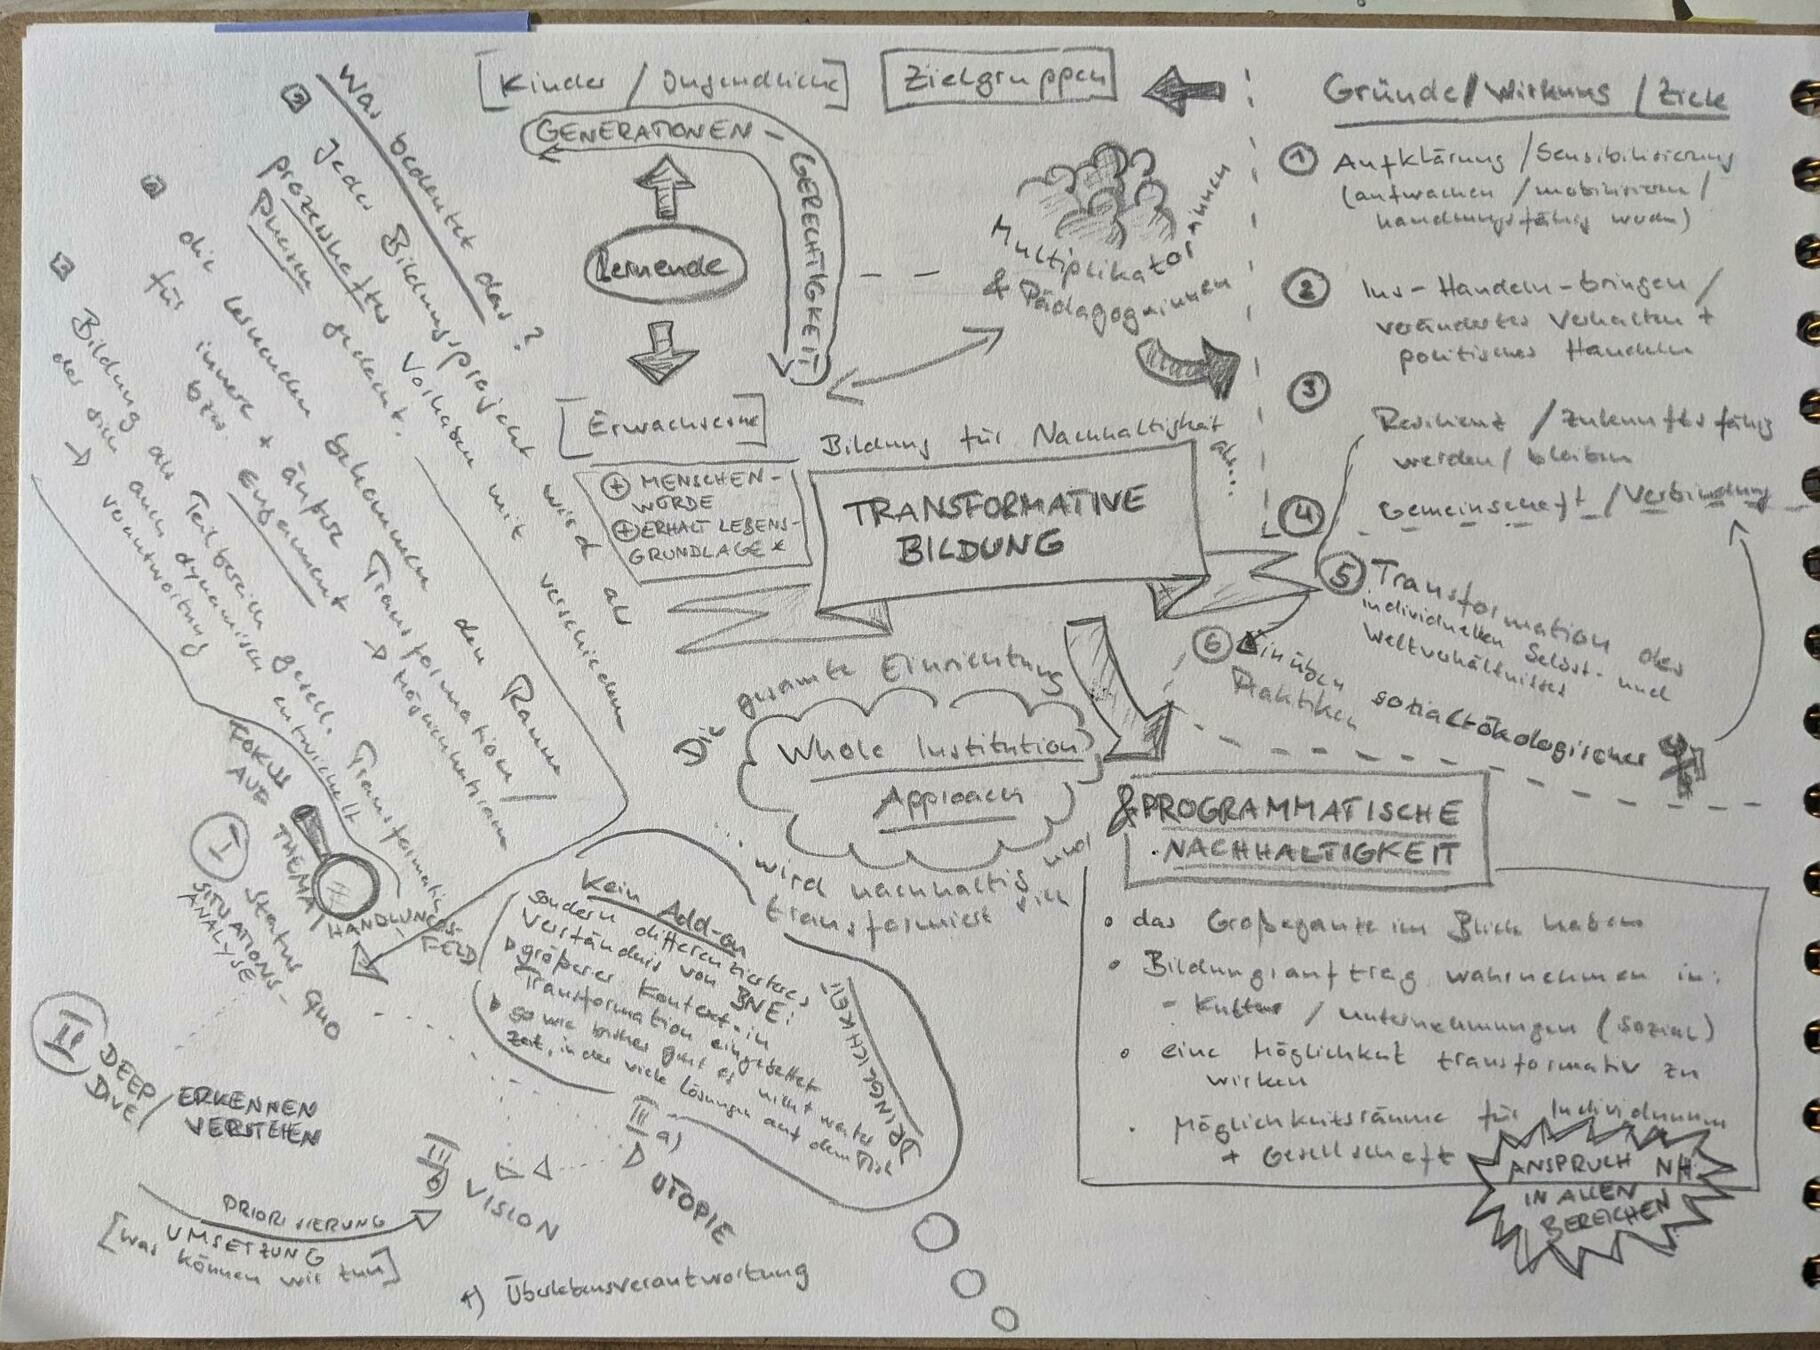 [Kinder / Jugendliche]
Zielgruppen
GENERATIONEN -
GERECHTIGKEIT
Lernende
[Erwachsene]
Multiplikator*innen
& Pädagog*innen
Gründe / Wirkung / Ziele
① Aufklärung / Sensibilisierung
(aufwachen / mobilisieren /
handlungsfähig werden)
② Ins-Handeln-bringen /
verändertes Verhalten +
politisches Handeln
③
Resilienz / zukunftsfähig
werden / bleiben
④ Gemeinschaft / Verbindung
⑤ Transformation des
individuellen Selbst- und
Weltverhältnisses
⑥ Einüben sozialökologischer
Praktiken
Bildung für Nachhaltigkeit
als...
TRANSFORMATIVE
BILDUNG
⊕ MENSCHEN-
WÜRDE
⊕ ERHALT LEBENS-
GRUNDLAGE *
Die gesamte Einrichtung
Whole Institution
Approach
... wird nachhaltig und
transformiert sich
& PROGRAMMATISCHE
NACHHALTIGKEIT
• das Großeganze im Blick haben
• Bildungsauftrag wahrnehmen in:
- Kultur / Unternehmungen (sozial)
• eine Möglichkeit transformativ zu
wirken
• Möglichkeitsräume für Individuum
+ Gesellschaft
ANSPRUCH NH
IN ALLEN
BEREICHEN
Was bedeutet das?
Jedes Bildungsprojekt wird als
prozesshaftes Vorhaben mit verschiedenen
Phasen gedacht.
die Lernenden bekommen den Raum
für innere + äußere Transformation /
bzw. Engagement →
Bildung als Teilbereich gesell. Transformation
der sich auch dynamisch entwickelt
→ Verantwortung
FOKUS
AUF THEMA /
HANDLUNGS-
FELD
I Status Quo
SITUATIONS-
ANALYSE
II DEEP
DIVE /
ERKENNEN
VERSTEHEN
III b)
VISION
III a)
UTOPIE
PRIORISIERUNG
UMSETZUNG
[Was können wir tun]
Kein Add-on
sondern differenziertes
Verständnis von BNE:
größerer Kontext - in
Transformation eingebettet
so wie bisher geht es nicht weiter
Zeit, in der viele Lösungen auf dem Tisch
DRINGLICHKEIT
*) Überlebensverantwortung